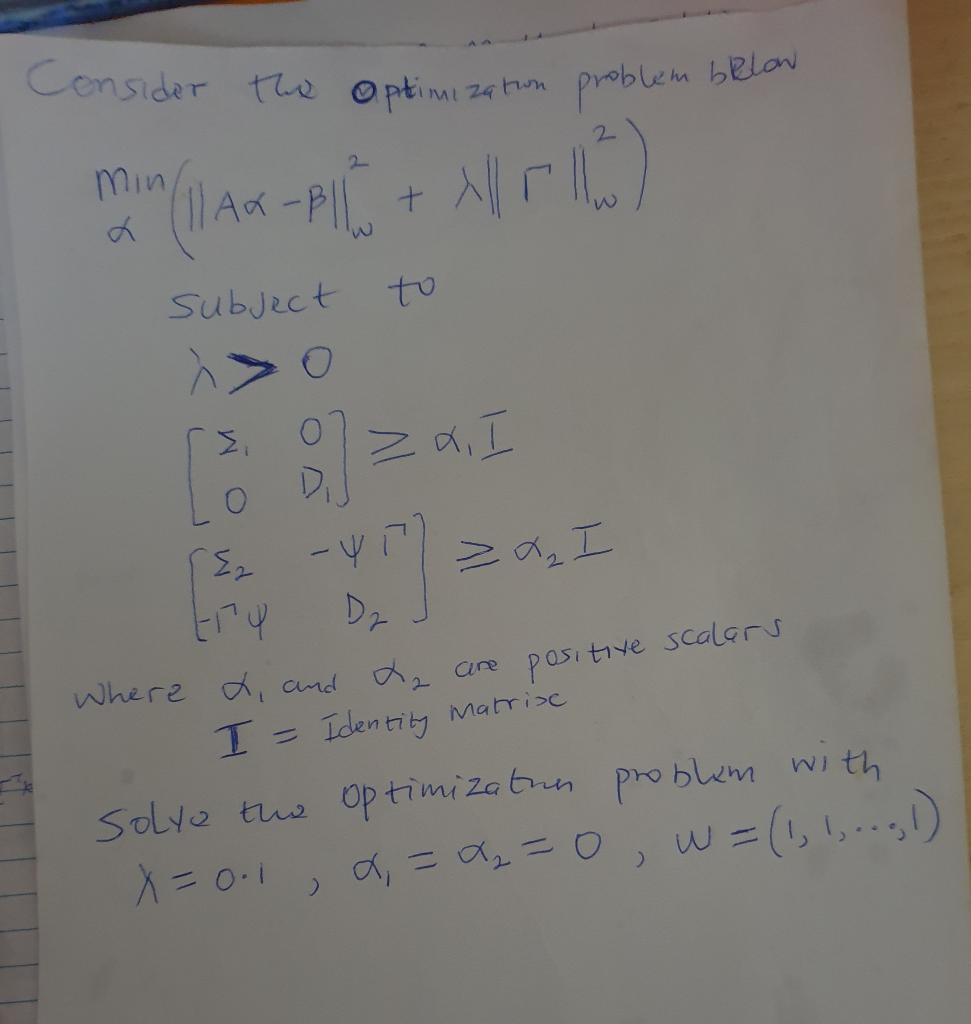 Consider the optimization problem below
min_α (||Aα - β||²_w + λ||Γ||²_w)
subject to
λ > 0
[Σ₁ 0; 0 D₁] ≥ α₁I
[Σ₂ -ΨΓ; -ΓΨ D₂] ≥ α₂I
where α₁ and α₂ are positive scalars
I = Identity Matrix
Solve the optimization problem with
λ = 0.1, α₁ = α₂ = 0, w = (1, 1, ..., 1)